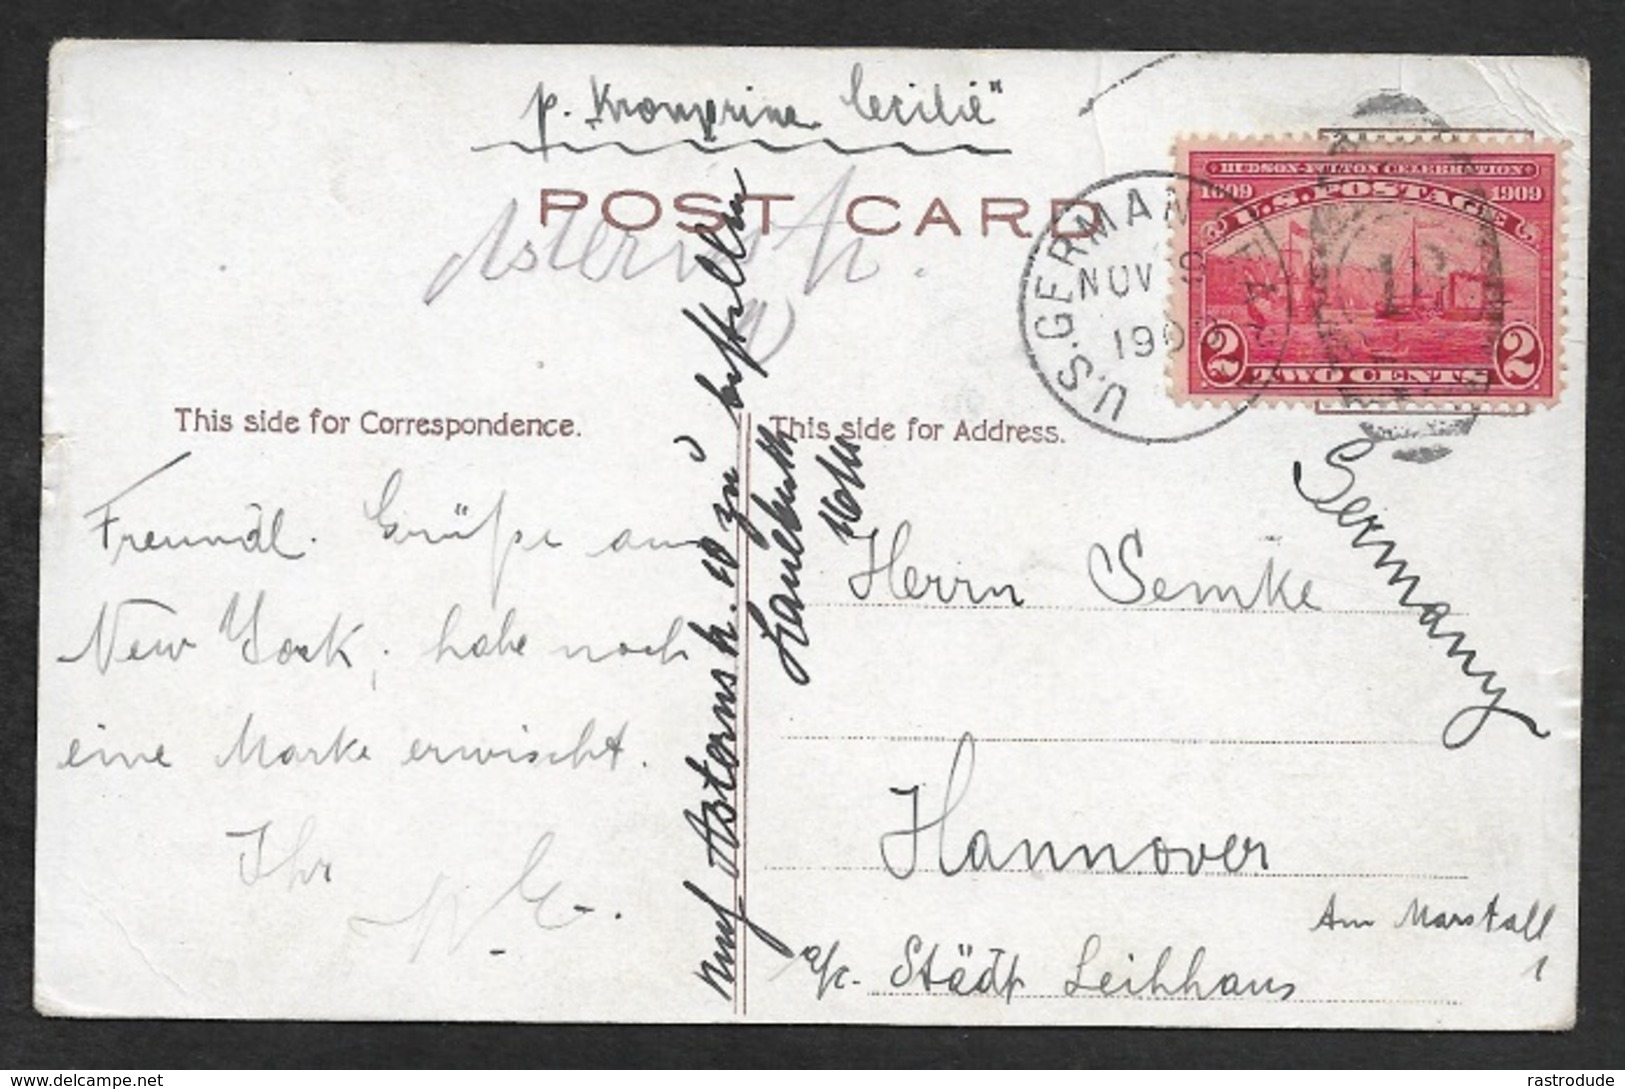 p. "Kronprinz Cecilie"
POST CARD
Asternstr.
U.S. GERMAN
NOV
190
HUDSON-FULTON CELEBRATION
1609 1909
U.S. POSTAGE
2 TWO CENTS 2
This side for Correspondence.
This side for Address.
Freundl. Grüße aus
New York, habe noch
eine Marke erwischt.
Ihr
auf Asternstr. 10 zu bestellen
Germany
Herrn Semke
Hannover
Am Marstall
1
a/c. Städt Leihhaus
rastrodude
delcampe.net